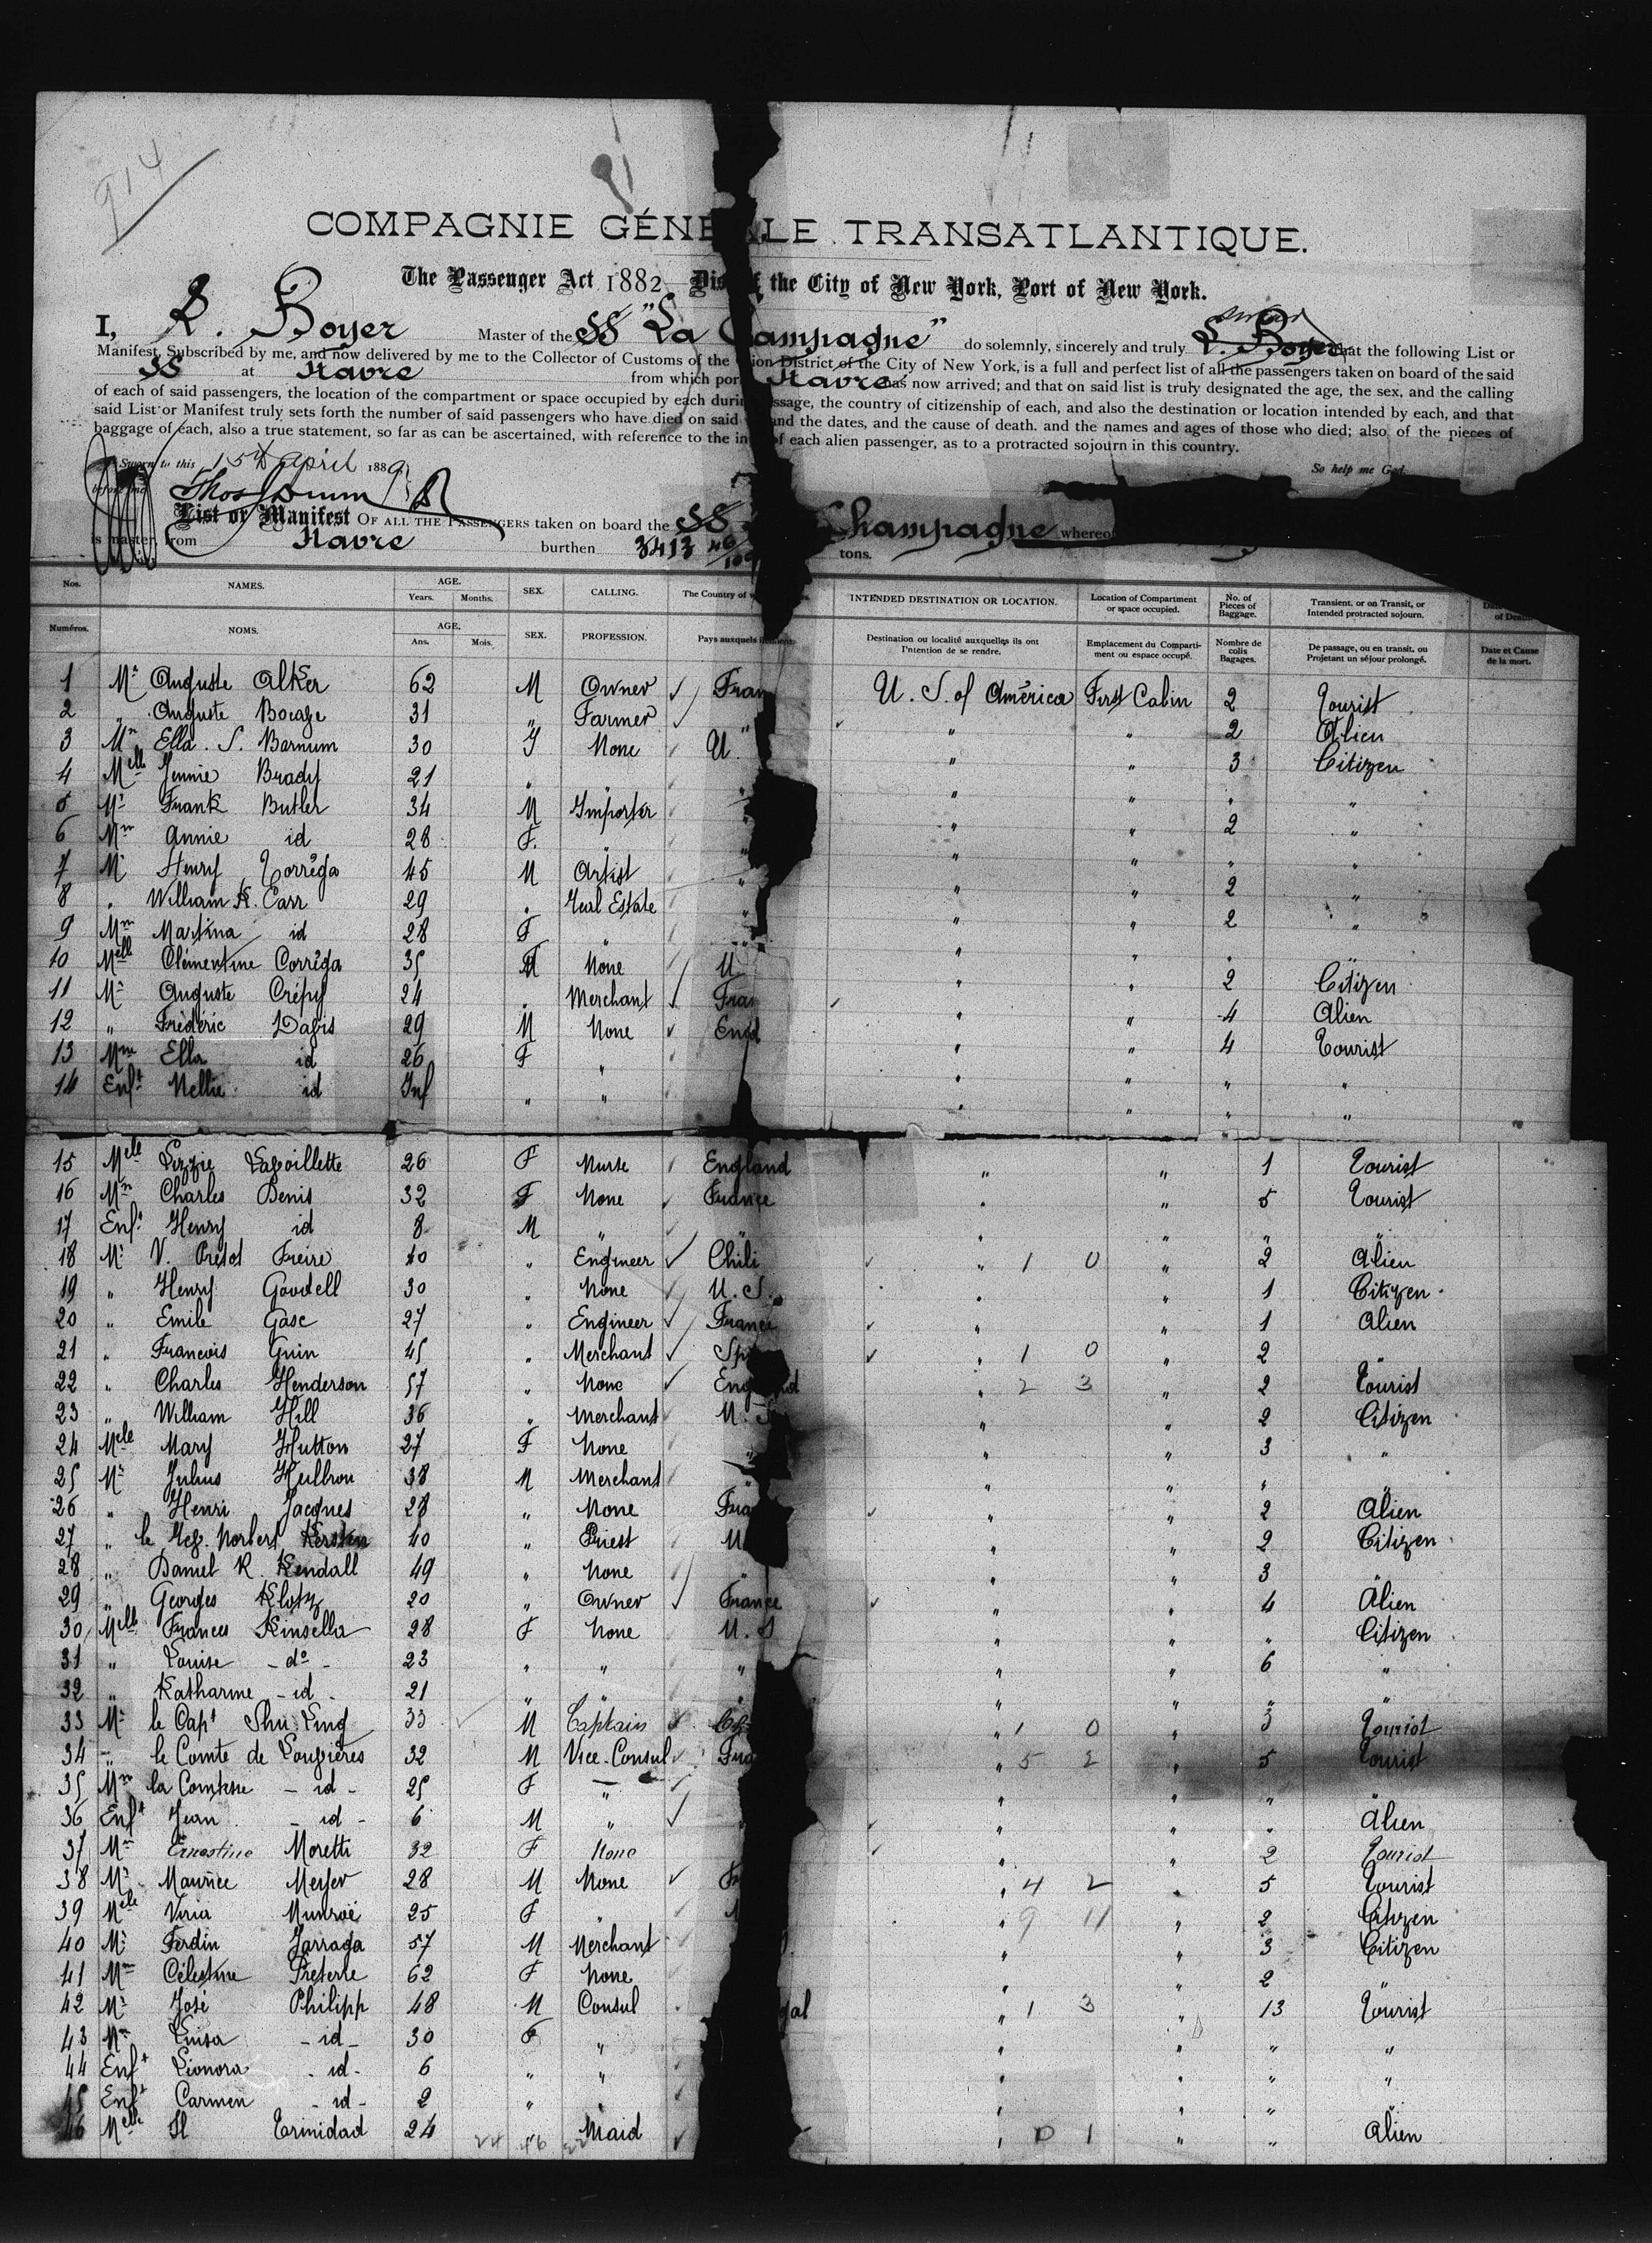 914
COMPAGNIE GÉNÉ ALE TRANSATLANTIQUE.
The Passenger Act 1882 Dis the City of New York, Port of New York.
I, L. Boyer Master of the SS "La Champagne" do solemnly, sincerely and truly swear L. Boyer that the following List or
Manifest, Subscribed by me, and now delivered by me to the Collector of Customs of the tion District of the City of New York, is a full and perfect list of all the passengers taken on board of the said
SS at Havre from which por Havre has now arrived; and that on said list is truly designated the age, the sex, and the calling
of each of said passengers, the location of the compartment or space occupied by each durin ssage, the country of citizenship of each, and also the destination or location intended by each, and that
said List or Manifest truly sets forth the number of said passengers who have died on said and the dates, and the cause of death. and the names and ages of those who died; also, of the pieces of
baggage of each, also a true statement, so far as can be ascertained, with reference to the in of each alien passenger, as to a protracted sojourn in this country.
Sworn to this 15th April 1889 So help me God.
before me
List or Manifest OF ALL THE PASSENGERS taken on board the SS Champagne whereof
is master, from Havre burthen 3413 46/100 tons.
Nos. NAMES. AGE. Years. Months. SEX. CALLING. The Country of INTENDED DESTINATION OR LOCATION. Location of Compartment or space occupied. No. of Pieces of Baggage. Transient, or on Transit, or Intended protracted sojourn. of Death
Numéros. NOMS. AGE. Ans. Mois. SEX. PROFESSION. Pays auxquels Destination ou localité auxquelles ils ont l'intention de se rendre. Emplacement du Comparti-ment ou espace occupé. Nombre de colis Bagages. De passage, ou en transit, ou Projetant un séjour prolongé. Date et Cause de la mort.
1 Mr Auguste Alker 62 M Owner Fran U. S. of América First Cabin 2 Tourist
2 " Auguste Bocage 31 " Farmer " " " 2 Alien
3 Mme Ella. S. Barnum 30 F None U. " " 3 Citizen
4 Melle Jennie Brady 21 " " " " " " "
5 Mr Frank Butler 34 M Importer " " " 2 "
6 Mme Annie id 28 F. " " " " " "
7 Mr Henry Corréga 45 M Artist " " " 2 "
8 " William K. Carr 29 " Real Estate " " " 2 "
9 Mme Martina id 28 F " " " " " "
10 Melle Clémentine Corréga 35 F None U. " " 2 Citizen
11 Mr Auguste Crépy 24 " Merchant Fran " " 4 Alien
12 " Frédéric Davis 29 M None Engl " " 4 Tourist
13 Mme Ella id 26 F " " " " "
14 Enft Nellie id Inf " " " " " "
15 Melle Lizzie 26 F Nurse England " " 1 Tourist
16 Mme Charles Denis 32 F None France " " 5 Tourist
17 Enft Henry id 8 M " " " " " "
18 Mr V. Pretot Freire 40 " Engineer Chili " 1 0 " 2 Alien
19 " Henry Goodell 30 " None U. S. " " 1 Citizen
20 " Emile Gasc 27 " Engineer France " " 1 Alien
21 " Francois Guin 45 " Merchant Sp " 1 0 " 2 "
22 " Charles Henderson 57 " None England " 2 3 " 2 Tourist
23 " William Hill 36 " Merchant U. S " " 2 Citizen
24 Melle Mary Hutton 27 F None " " " 3 "
25 Mr Julius Heilbron 38 M Merchant " " " " "
26 " Henri Jacques 28 " None Fra " " 2 Alien
27 " le Rev. Norbert Kersten 40 " Priest U " " 2 Citizen
28 " Daniel R. Kendall 49 " None " " " 3 "
29 " Georges Klotz 20 " Owner France " " 4 Alien
30 Melle Frances Kinsella 28 F None U. S " " " Citizen
31 " Louise - do - 23 " " " " " 6 "
32 " Katharine - id - 21 " " " " " " "
33 Mr le Capt Shu Ling 33 M Captain Ch " 1 0 " 3 Tourist
34 " le Comte de 32 M Vice-Consul Fra " 5 2 " 5 Tourist
35 Mme la Comtesse - id - 25 F " " " " "
36 Enft Jean - id - 6 M " " " " Alien
37 Mme Ernestine Moretti 32 F None " " 2 Tourist
38 Mr Maurice Meyer 28 M None Fr " 4 2 " 5 Tourist
39 Melle Viria Munroe 25 F " " 9 11 " 2 Citizen
40 Mr Ferdin Yarraga 57 M Merchant " " 3 Citizen
41 Mme Célestine Preterre 62 F None " " 2 "
42 Mr José Philipp 48 M Consul gal " 1 3 " 13 Tourist
43 Mme Luisa - id - 30 F " " " " "
44 Enft Lionora - id - 6 " " " " " "
45 Enft Carmen - id - 2 " " " " " "
46 Melle H Trinidad 24 " Maid " 0 1 " " Alien
24 46 22